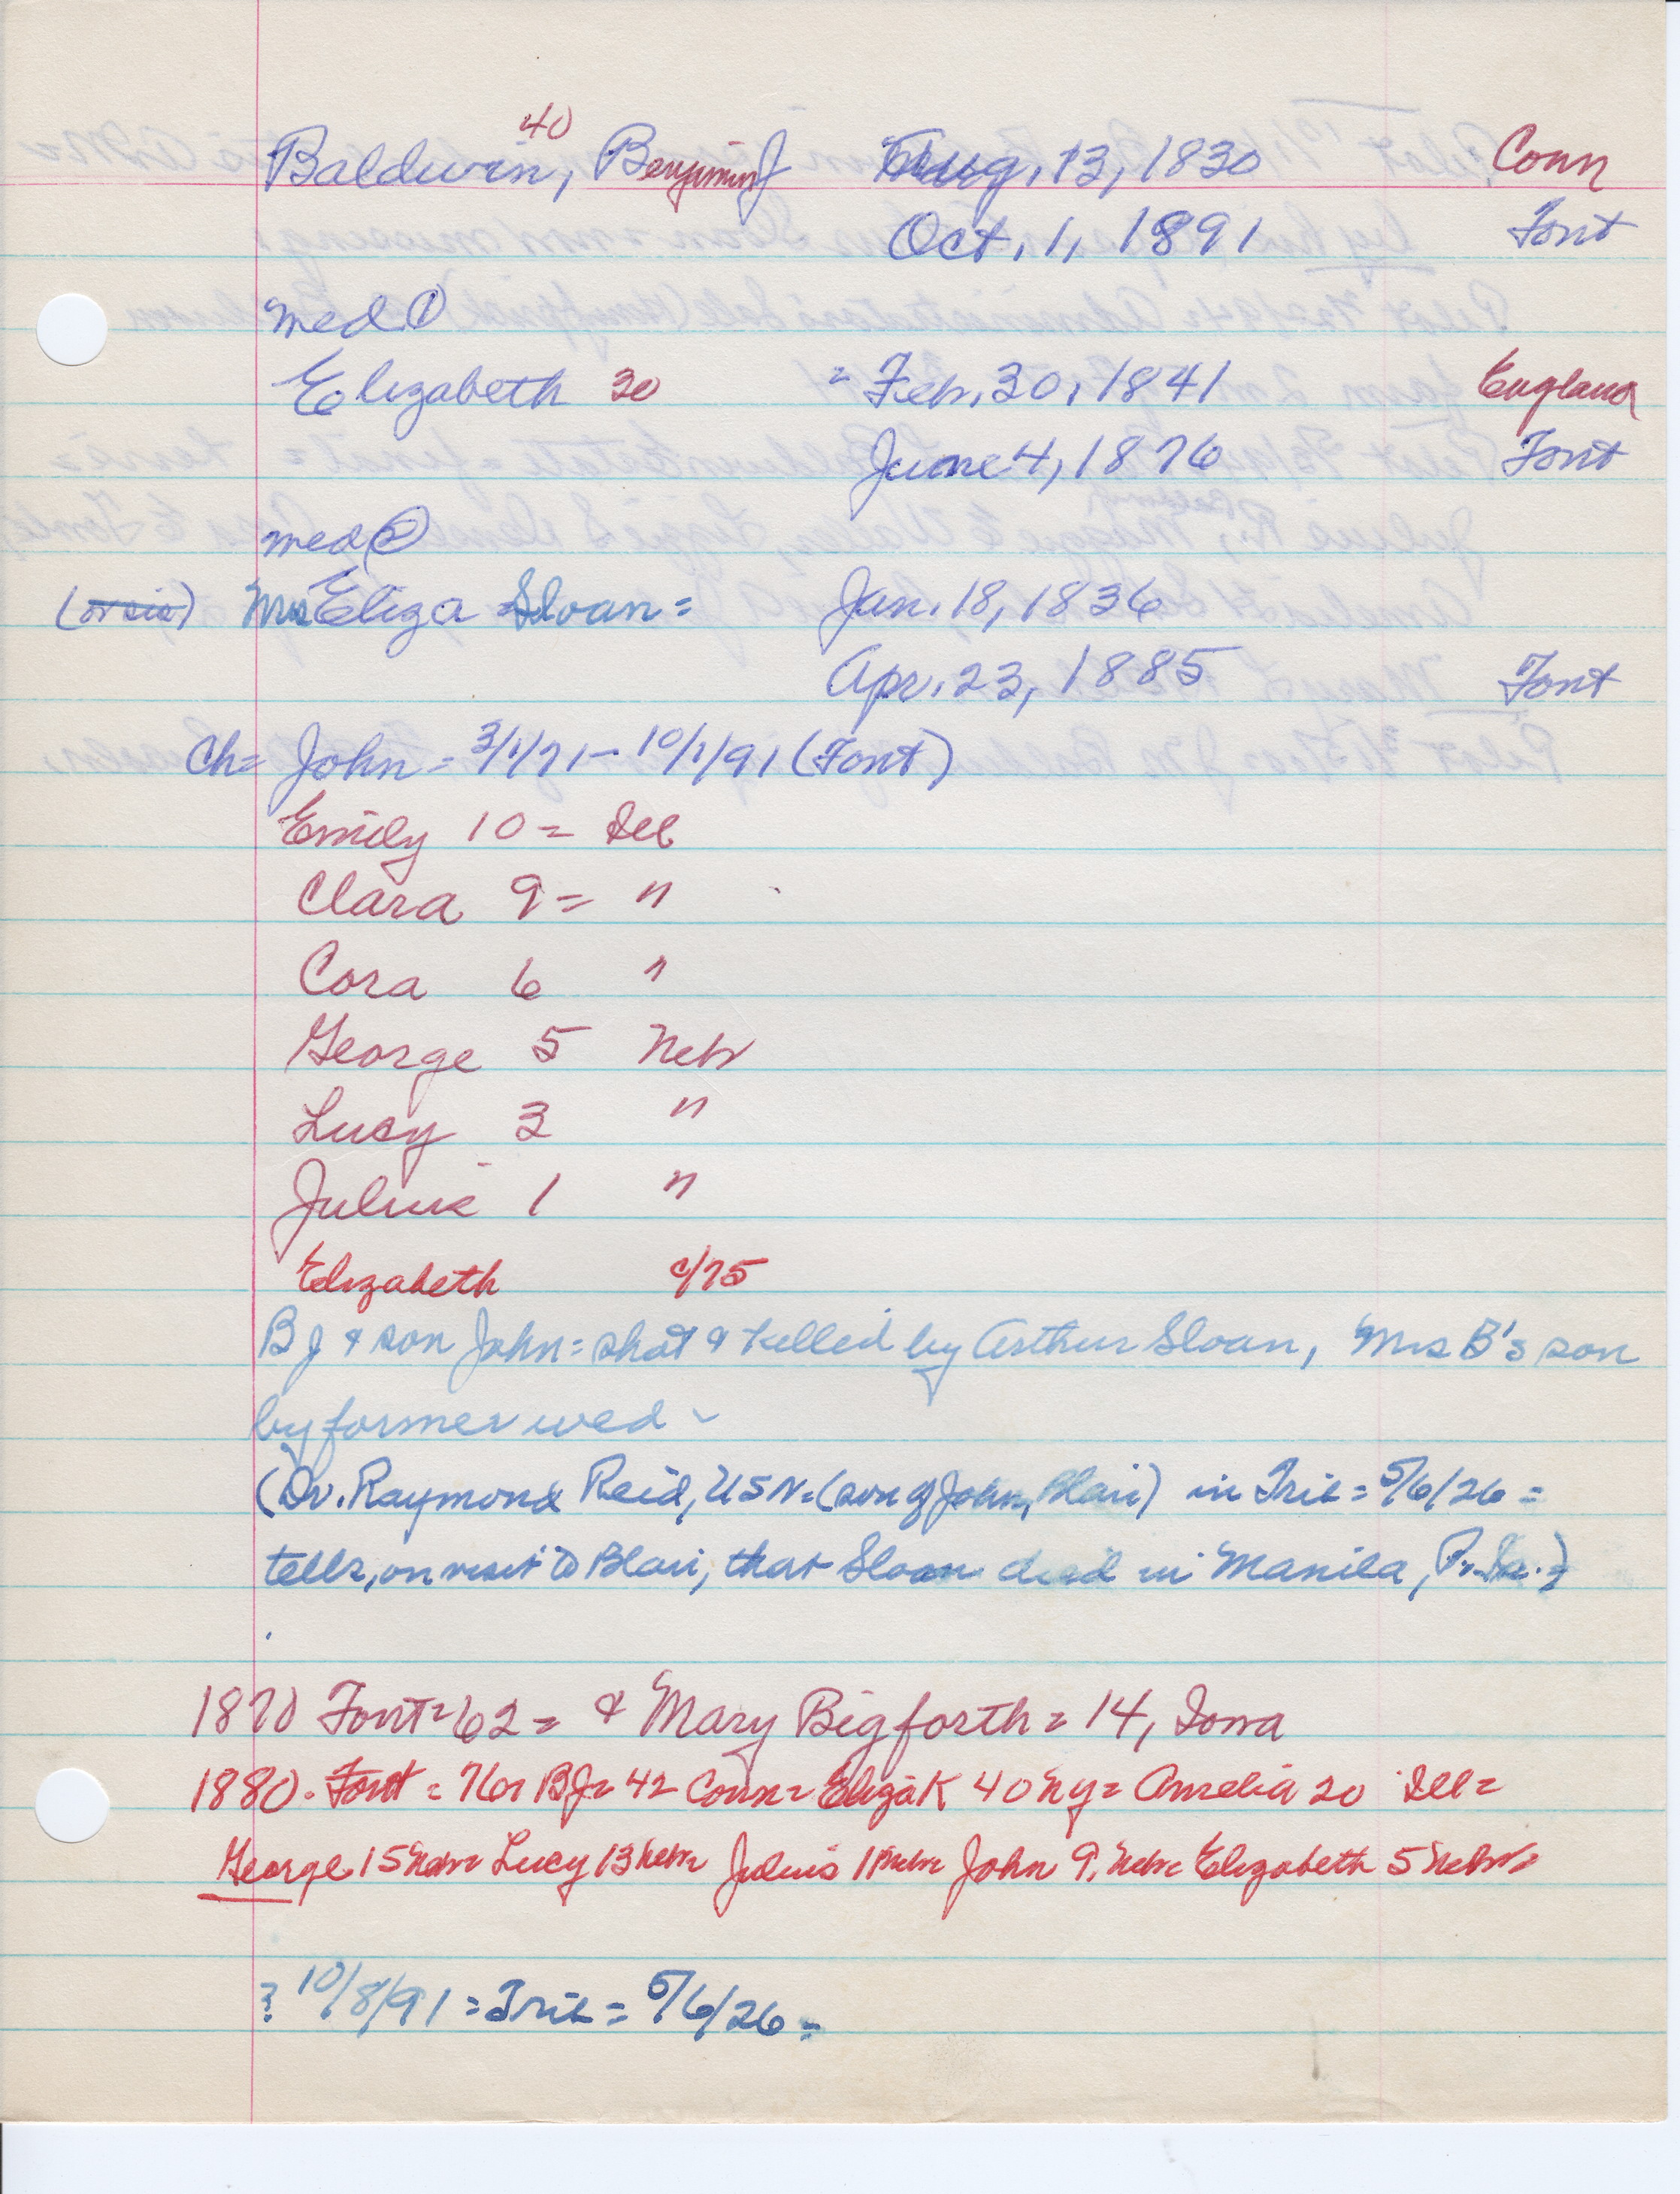 40
Baldwin, Benjiminj Aug, 13, 1830 Conn
Oct, 1, 1891 Font
med ①
Elizabeth 30 = Feb, 30, 1841 England
June 4, 1876 Font
med ②
(or sis) Mrs Eliza Sloan = Jan. 18, 1836
Apr. 23, 1885 Font
Ch= John - 3/1/71 - 10/1/91 (Font)
Emily 10 = Ill
Clara 9 = "
Cora 6 "
George 5 Nebr
Lucy 3 "
Julius 1 "
Elizabeth c/75
B J & son John = shot & killed by Arthur Sloan, Mrs B's son
by former wed -
(Dr. Raymond Reid, USN = (son of John, Blair) in Trib = 5/6/26 =
tells, on visit to Blair, that Sloan died in Manila,
1870 Font = 62 = & Mary Bigforth = 14, Iowa
1880 - Font = 76 BJ = 42 Conn = Eliza K 40 NY = Amelia 20 Ill =
George 15 Nebr = Lucy 13 Nebr = Julius 11 Nebr = John 9, Nebr = Elizabeth 5 Nebr =
? 10/8/91 = Trib = 5/6/26 =